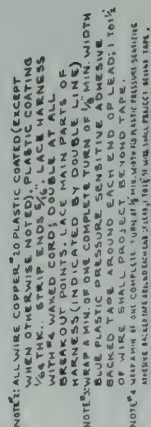 NOTE²: ALL WIRE COPPER #20 PLASTIC COATED (EXCEPT
WHEN OTHERWISE NOTED). PLASTIC COATING
1/64 THK. STRIP ENDS 5/16". LACE HARNESS
WITH #4 WAXED CORD; DOUBLE AT ALL
BREAKOUT POINTS. LACE MAIN PARTS OF
HARNESS (INDICATED BY DOUBLE LINE)
NOTE³: WRAP A MIN. OF ONE COMPLETE TURN OF 1/8 MIN. WIDTH
BLUE PLASTIC PRESSURE SENSITIVE ADHESIVE
BACKED TAPE AROUND EACH END OF LEAD; TO 1 1/2
OF WIRE SHALL PROJECT BEYOND TAPE.
NOTE⁴ WRAP A MIN OF ONE COMPLETE TURN OF 1/8 MIN. WIDTH PLASTIC PRESSURE SENSITIVE
ADHESIVE BACKED TAPE AROUND EACH LEAD WIRE SHALL PROJECT BEYOND TAPE.